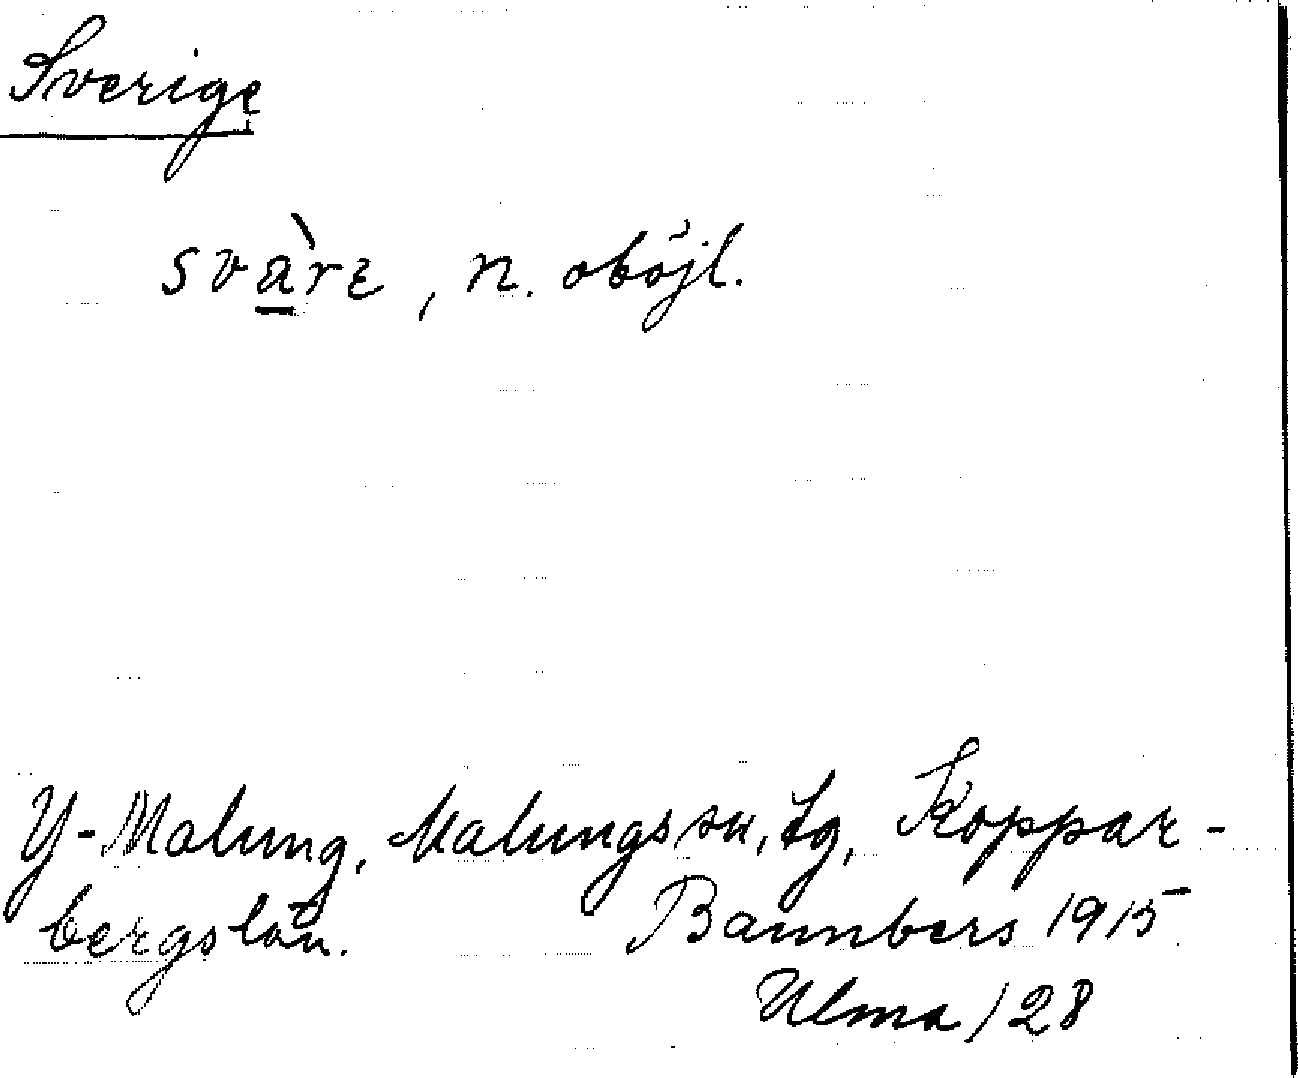 Sverige
svàrɛ, n. oböjl.
Y-Malung, Malungs sn, tg, Koppar-
bergs län. Bannbers 1915
Ulma 128